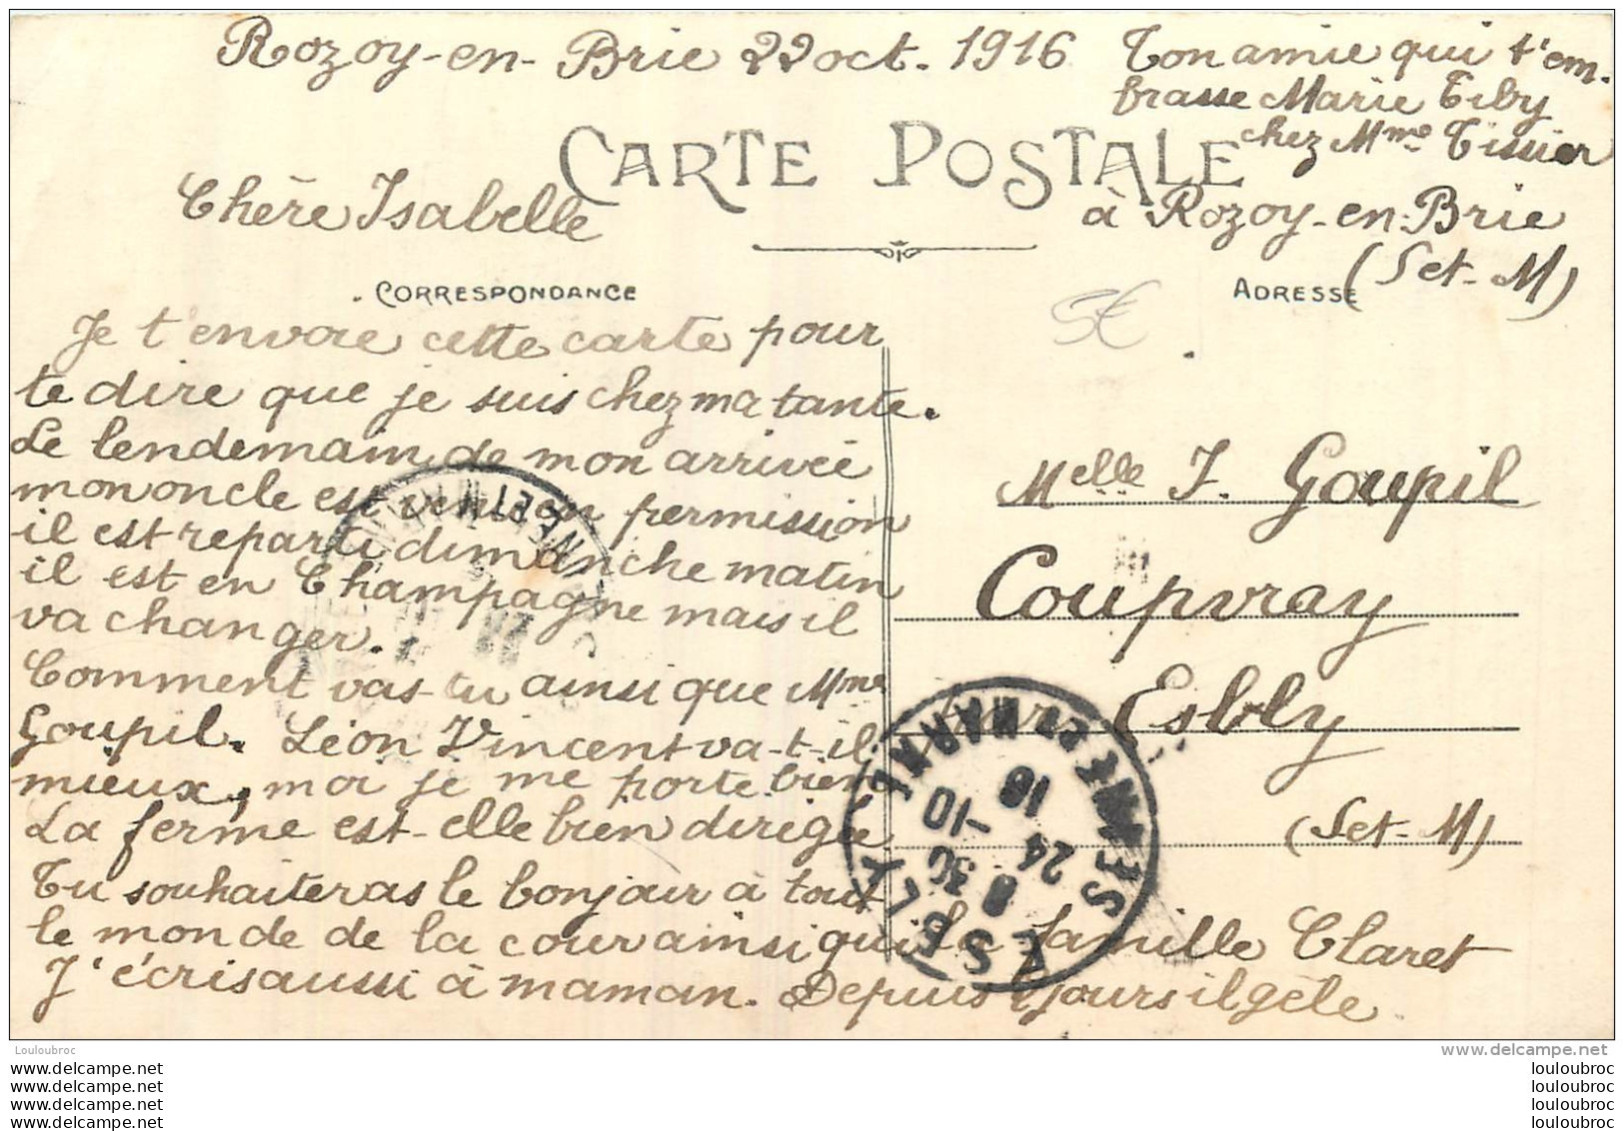 Rozoy-en-Brie 22 oct. 1916
CARTE POSTALE
Chère Isabelle
CORRESPONDANCE
Je t'envoie cette carte pour
te dire que je suis chez ma tante.
Le lendemain de mon arrivée
mon oncle est venu en permission
il est reparti dimanche matin
il est en Champagne mais il
va changer.
Comment vas-tu ainsi que Mme
Goupil. Léon Vincent va-t-il
mieux, moi je me porte bien
La ferme est-elle bien dirigée
Tu souhaiteras le bonjour à tout
le monde de la cour ainsi qu'à la famille Claret
J'écris aussi à maman. Depuis 2 jours il gèle
Ton amie qui t'em-
brasse Marie Tiby
chez Mme Tissier
à Rozoy-en-Brie
(S et-M)
ADRESSE
5€
Melle I. Goupil
Coupvray
par Esbly
(S et-M)
ESBLY
SEINE ET MARNE
8 30
24 -10
16
Louloubroc
www.delcampe.net
www.delcampe.net
louloubroc
www.delcampe.net
louloubroc
www.delcampe.net
louloubroc
www.delcampe.net
louloubroc